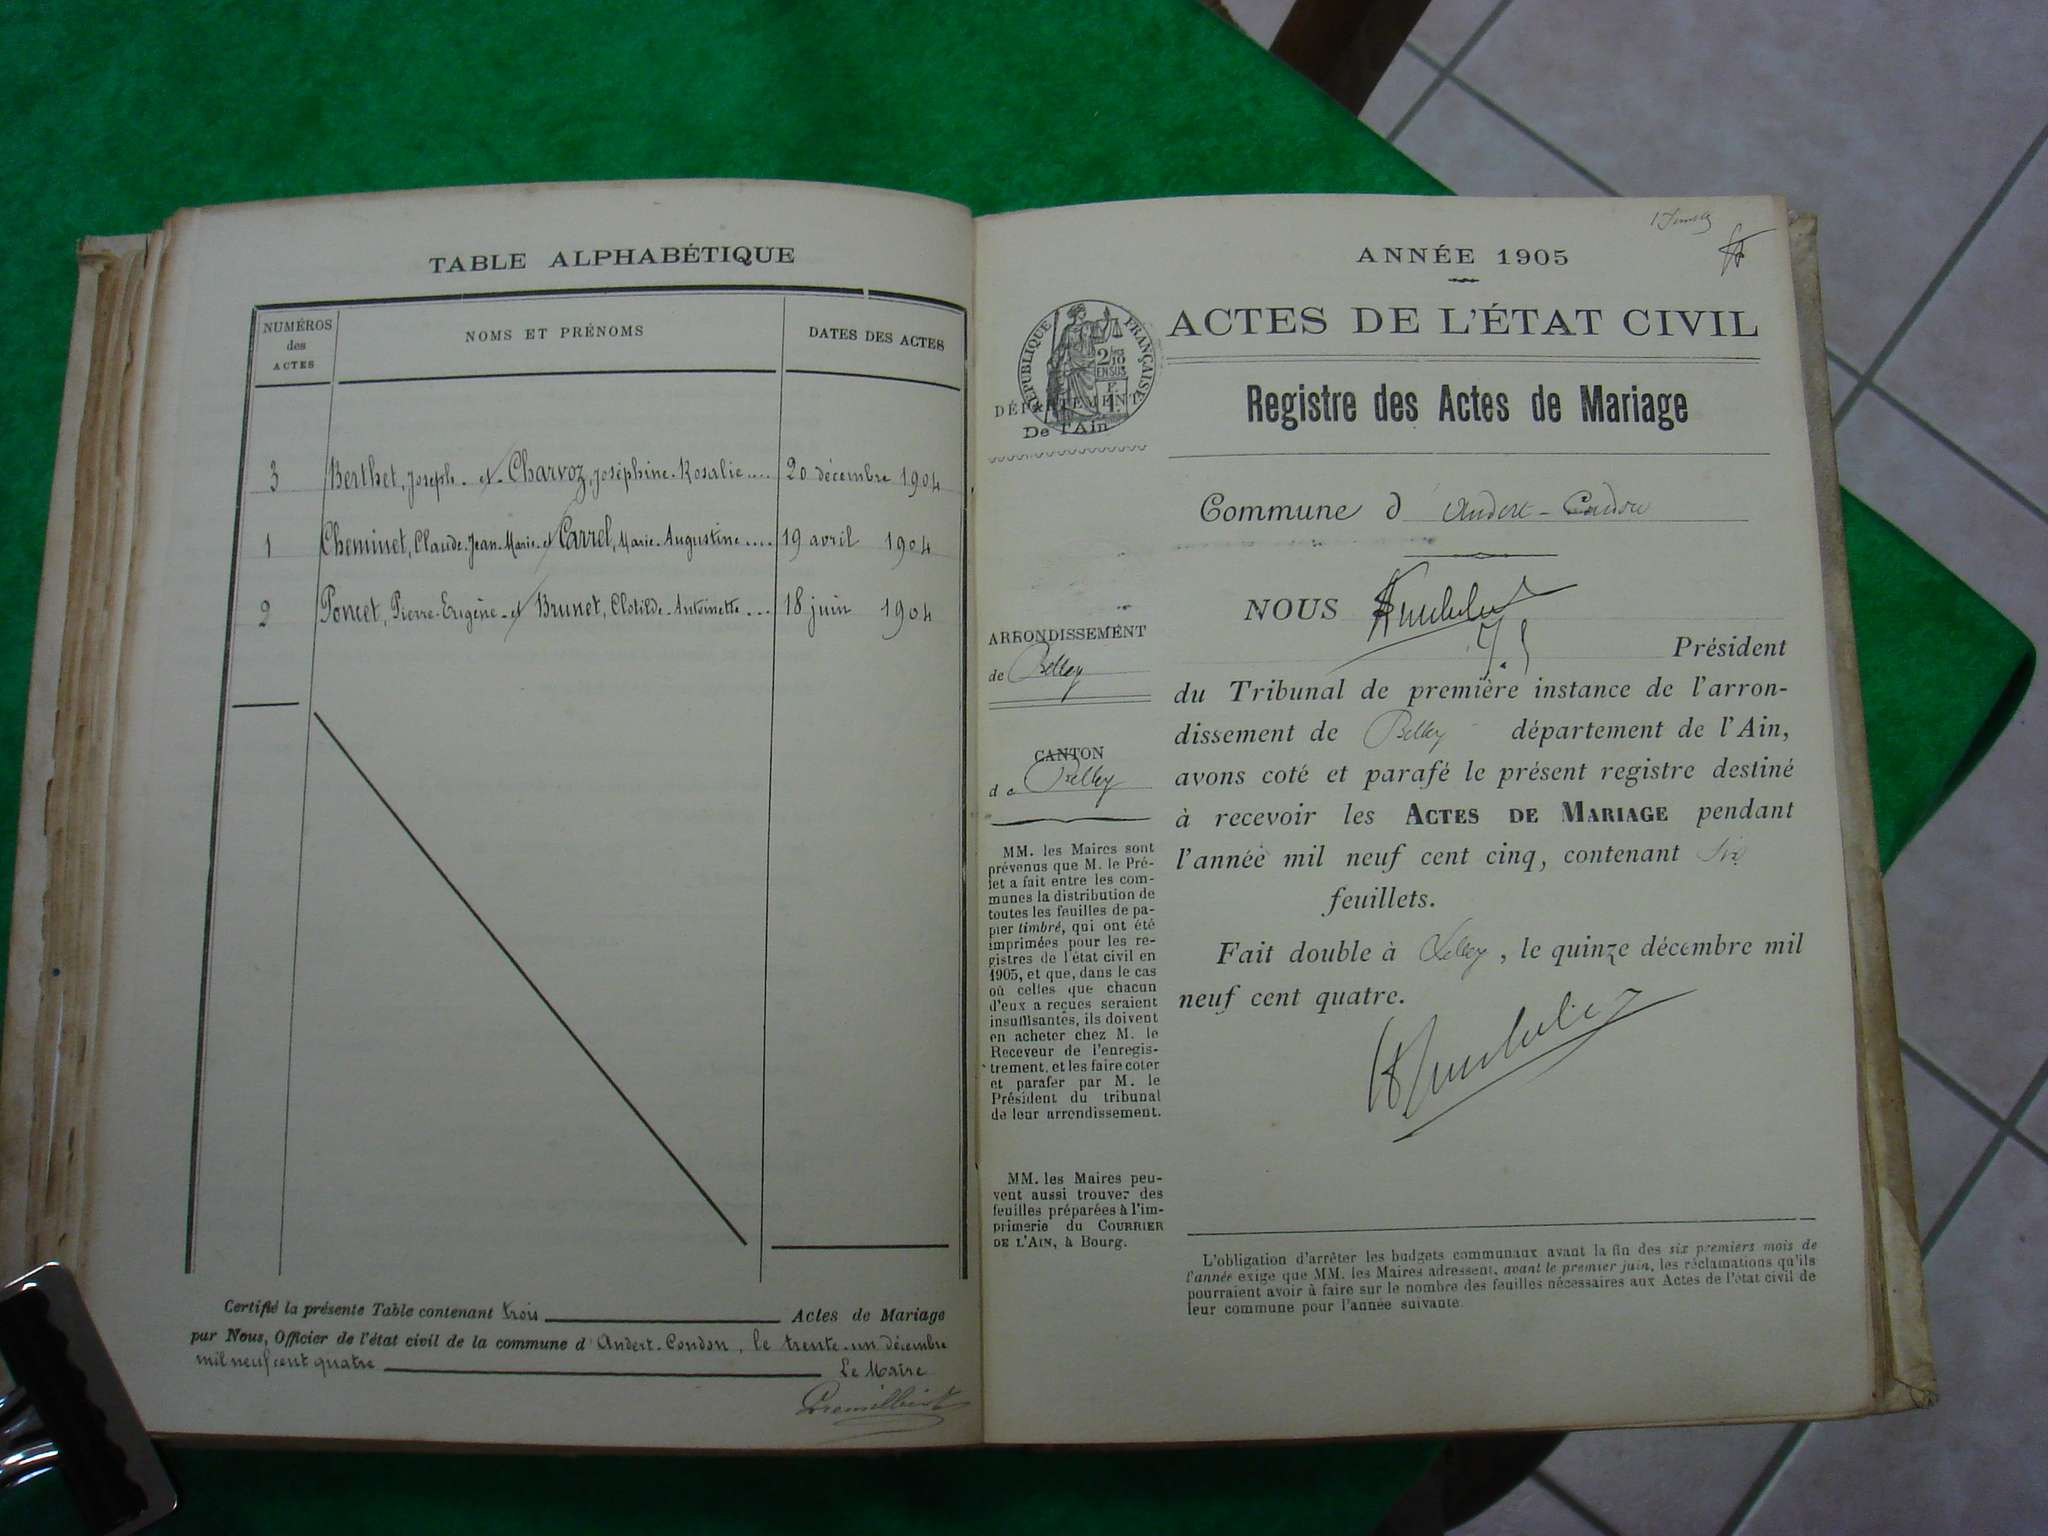 TABLE ALPHABÉTIQUE
NUMÉROS des ACTES
NOMS ET PRÉNOMS
DATES DES ACTES
3 Berthet, Joseph et Charvoz, Joséphine-Rosalie .... 20 décembre 1904
1 Cheminet, Claude-Jean-Marie et Carrel, Marie-Augustine .... 19 avril 1904
2 Poncet, Pierre-Eugène et Brunet, Clotilde-Antoinette ... 18 juin 1904
Certifié la présente Table contenant trois Actes de Mariage
par Nous, Officier de l'état civil de la commune d'Andert-Condon, le trente-un décembre
mil neuf cent quatre Le Maire
ANNÉE 1905
ACTES DE L'ÉTAT CIVIL
RÉPUBLIQUE FRANÇAISE
2/10
EN SUS
DÉPARTEMENT
De l'Ain
Registre des Actes de Mariage
Commune d'Andert-Condon
ARRONDISSEMENT
de Belley
CANTON
de Belley
MM. les Maires sont
prévenus que M. le Pré-
fet a fait entre les com-
munes la distribution de
toutes les feuilles de pa-
pier timbré, qui ont été
imprimées pour les re-
gistres de l'état civil en
1905, et que, dans le cas
où celles que chacun
d'eux a reçues seraient
insuffisantes, ils doivent
en acheter chez M. le
Receveur de l'enregis-
trement, et les faire coter
et parafer par M. le
Président du tribunal
de leur arrondissement.
MM. les Maires peu-
vent aussi trouver des
feuilles préparées à l'im-
primerie du COURRIER
DE L'AIN, à Bourg.
NOUS
Président
du Tribunal de première instance de l'arron-
dissement de Belley département de l'Ain,
avons coté et parafé le présent registre destiné
à recevoir les ACTES DE MARIAGE pendant
l'année mil neuf cent cinq, contenant six
feuillets.
Fait double à Belley, le quinze décembre mil
neuf cent quatre.
L'obligation d'arrêter les budgets communaux avant la fin des six premiers mois de
l'année exige que MM. les Maires adressent, avant le premier juin, les réclamations qu'ils
pourraient avoir à faire sur le nombre des feuilles nécessaires aux Actes de l'état civil de
leur commune pour l'année suivante.